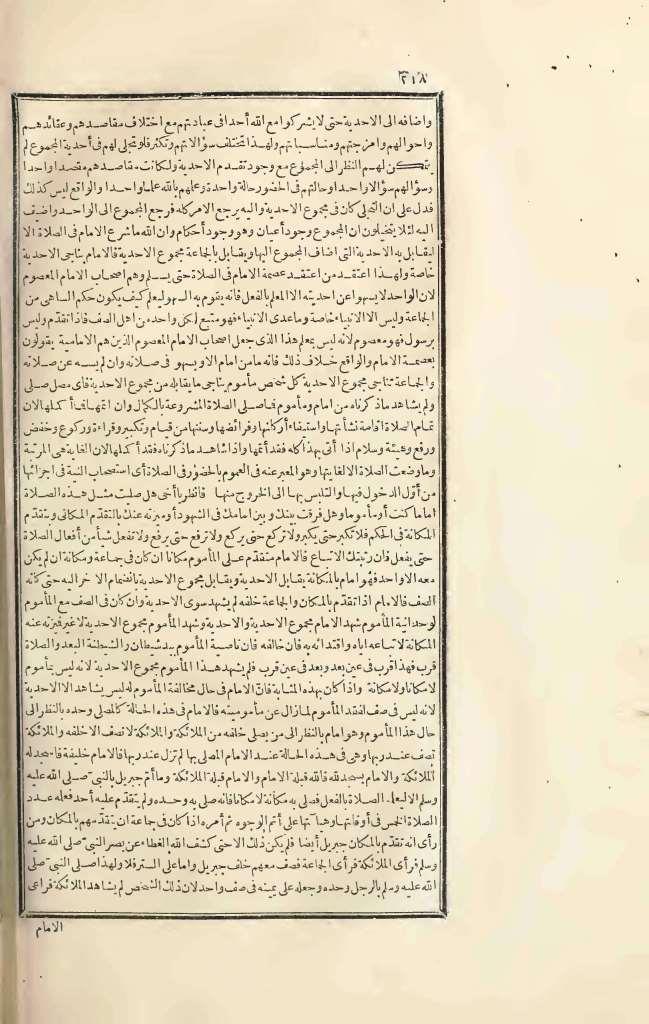 ٣١٨
واضافه الى الاحدية حتى لا يشركوا مع الله أحدا فى عبادتهم مع اختلاف مقاصدهم وعقائدهم
واحوالهم وامزجتهم ومناسباتهم ولهذا تختلف سؤالاتهم وتكثر فلو تجلى لهم فى أحدية المجموع لم
يتمكن لهم النظر الى المجموع مع وجود تقدم الاحدية ولكانت مقاصدهم مقصدا واحدا
وسؤالهم سؤالا واحدا وحالتهم فى الحضور حالة واحدة وعلمهم بالله علما واحدا والواقع ليس كذلك
فدل على ان التجلى كان فى مجموع الاحدية واليه يرجع الامر كله فرجع المجموع الى الواحد واضيف
اليه لئلا يتخيلون ان المجموع وجود أعيان وهو وجود أحكام وان الله ما شرع الامام فى الصلاة الا
ليقابل به الاحدية التى اضاف المجموع اليها ويقابل بالجماعة مجموع الاحدية فالامام يناجى الاحدية
خاصة ولهذا اعتقد من اعتقد عصمة الامام فى الصلاة حتى يسلم وهم اصحاب الامام المعصوم
لان الواحد لا يسهو عن احديته الا المعلم بالفعل فانه يقوم به السهو ليعلم كيف يكون حكم الساهى من
الجماعة وليس الا الانبياء خاصة وما عدى الانبياء فهو متبع لكل واحد من اهل الصف فاذا تقدم وليس
برسول فهو معصوم لانه ليس بمعلم هذا الذى جعل اصحاب الامام المعصوم الذين هم الامامية يقولون
بعصمة الامام والواقع خلاف ذلك فانه ما من امام الا ويسهو فى صلاته وان لم يسه عن صلاته
والجماعة تناجى مجموع الاحدية كل شخص مأموم يناجى ما يقابله من مجموع الاحدية فاى مصل صلى
ولم يشاهد ماذكرناه من امام ومأموم فما صلى الصلاة المشروعة بالكمال وان اتمها فما أكملها لان
تمام الصلاة اقامة نشأتها واستيفاء أركانها وفرائضها وسننها من قيام وتكبير وقراءة وركوع وخفض
ورفع وهيئة وسلام اذا أتى بهذا كله فقد أتمها واذا شاهد ما ذكرناه فقد أكملها لان الغاية هى المرتبة
وما وضعت الصلاة الا لغايتها وهو المعبر عنه فى العموم بالحضور فى الصلاة أى استصحاب النية فى اجزائها
من أوّل الدخول فيها والتلبس بها الى الخروج منها فانظر يا أخى هل صليت مثل هذه الصلاة
اماما كنت أو مأموما وهل فرقت بينك وبين امامك فى الشهود أو ميزته عنك بالتقدّم المكانى وبتقدّم
المكانة فى الحكم فلا تكبر حتى يكبر ولا تركع حتى يركع ولا ترفع حتى يرفع ولا تفعل شيأ من أفعال الصلاة
حتى يفعل فان رتبتك الاتباع فالامام متقدّم على المأموم مكانا ان كان فى جماعة ومكانة ان لم يكن
معه الا واحد فهو امام بالمكانة يقابل الاحدية ويقابل مجموع الاحدية بانضمام الاخر اليه حتى كانه
الصف فالامام اذا تقدّم بالمكان والجماعة خلفه لم يشهد سوى الاحدية وان كان فى الصف مع المأموم
لوحدانية المأموم شهد الامام مجموع الاحدية والاحدية وشهد المأموم مجموع الاحدية لا غير فميزته عنه
المكانة لاتباعه اياه واقتدائه به فان خالفه فان ناصية المأموم بيد شيطان والشيطنة البعد والصلاة
قرب فهذا قرب فى عين بعد وبعد فى عين قرب فلم يشهد هذا المأموم مجموع الاحدية لانه ليس بمأموم
لا مكانا ولا مكانة واذا كان بهذه المثابة فانّ الامام فى حال مخالفة المأموم له ليس يشاهد الا الاحدية
لانه ليس فى صف لفقد المأموم لما زال عن مأموميته فالامام فى هذه الحالة كالمصلى وحده بالنظر الى
حال هذا المأموم وهو امام بالنظر الى من يصلى خلفه من الملائكة والملائكة لا تصف الا خلفه والملائكة
تصف عند ربها وهى فى هذه الحالة عند الامام المصلى بها لم تزل عند ربها فالامام خليفة فاسجد له
الملائكة والامام يسجد لله فالله قبلة الامام والامام قبلة الملائكة وما أتم جبريل بالنبى صلى الله عليه
وسلم الا ليعلمه الصلاة بالفعل فصلى به مكانة لا مكانا فانه صلى به وحده ولم يتقدّم عليه أحد فعله عدد
الصلاة الخمس فى أوقاتها وهيآتها على أتم الوجوه ثم أمره اذا كان فى جماعة ان يتقدّمهم بالمكان ومن
رأى انه تقدّم بالمكان جبريل أيضا فلم يكن ذلك الا حتى كشف الله الغطاء عن بصر النبى صلى الله عليه
وسلم فرأى الملائكة فرأى الجماعة فصف معهم خلف جبريل واما على الستر فلا ولهذا صلى النبى صلى
الله عليه وسلم بالرجل وحده وجعله على يمينه فى صف واحد لان ذلك الشخص لم يشاهد الملائكة فراعى
الامام